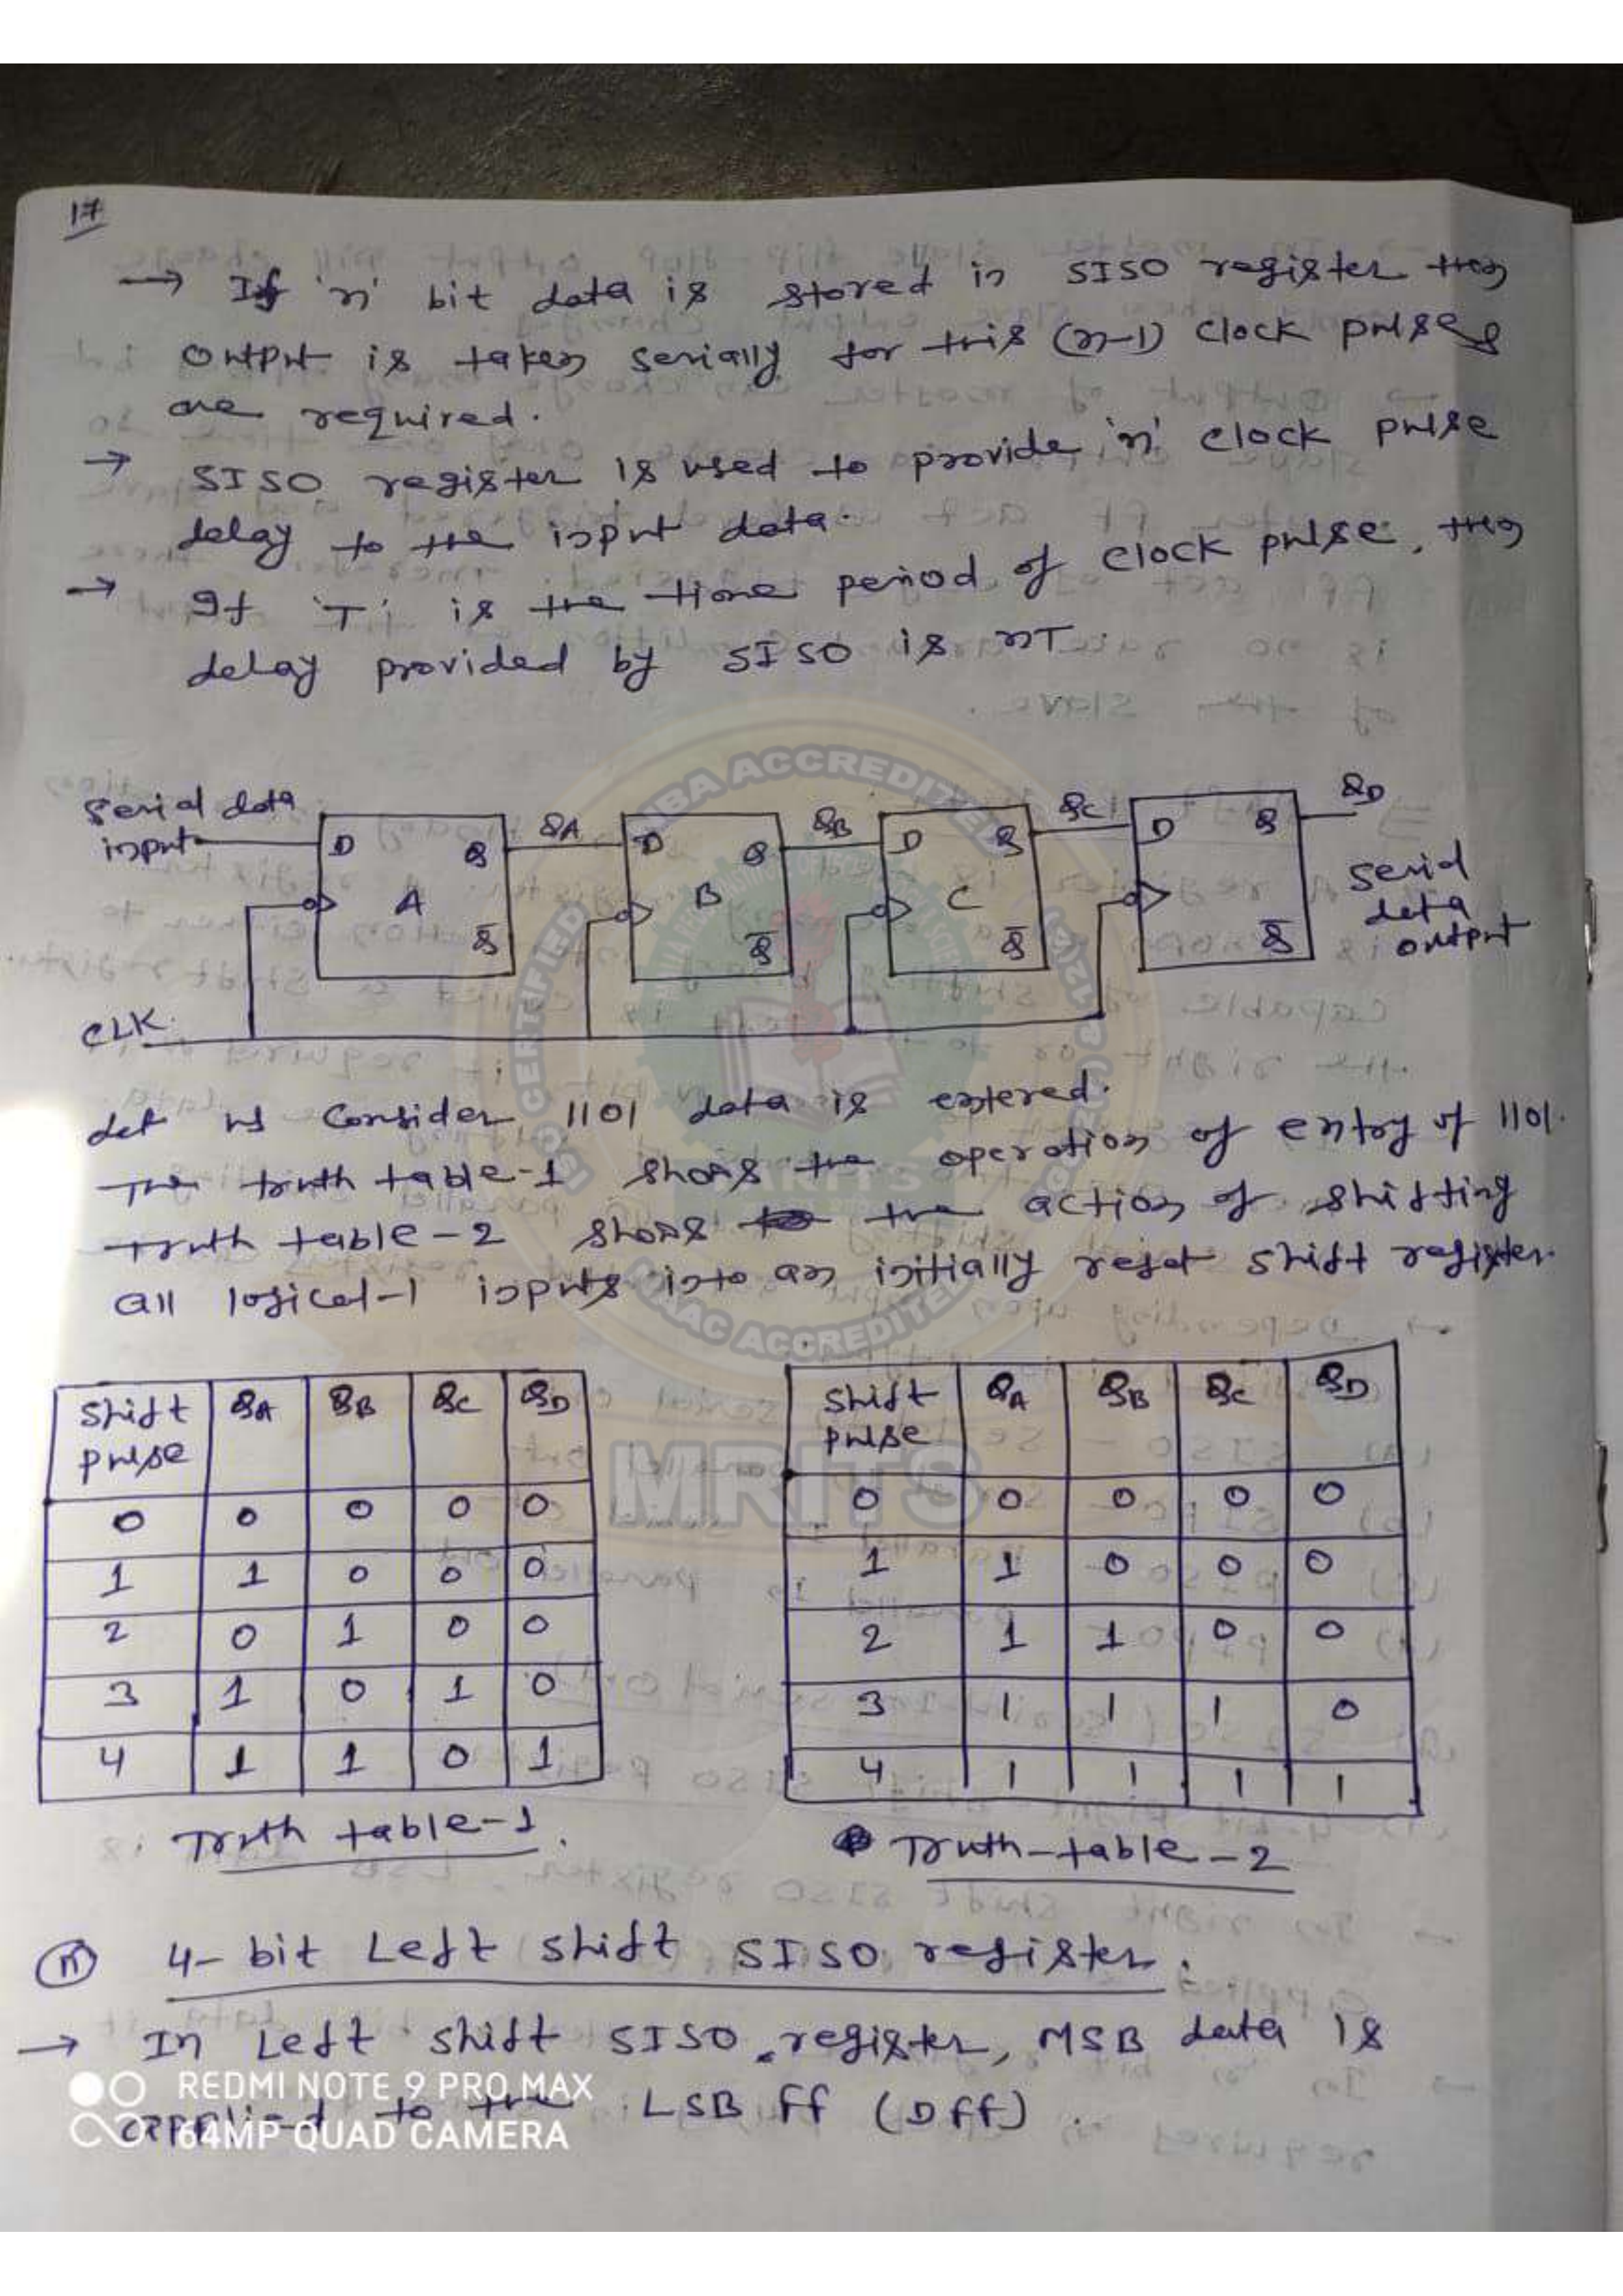 17
→ If 'n' bit data is stored in SISO register then
output is taken serially for this (n-1) clock pulses
are required.
→ SISO register is used to provide 'n' clock pulse
delay to the input data.
→ If 'T' is the time period of clock pulse, then
delay provided by SISO is nT.
Serial data
input
D Q A Q̅
QA
D Q B Q̅
QB
D Q C Q̅
QC
D Q Q̅
QD
Serial
data
output
CLK
Let us consider 1101 data is entered.
The truth table-1 shows the operation of entry of 1101.
Truth table-2 shows the action of shifting
all logical-1 inputs into an initially reset shift register.
Shift pulse QA QB QC QD
0 0 0 0 0
1 1 0 0 0
2 0 1 0 0
3 1 0 1 0
4 1 1 0 1
Truth table-1.
Shift pulse QA QB QC QD
0 0 0 0 0
1 1 0 0 0
2 1 1 0 0
3 1 1 1 0
4 1 1 1 1
Truth-table-2
4-bit Left shift SISO register.
→ In Left shift SISO register, MSB data is
applied to the LSB ff (Dff).
REDMI NOTE 9 PRO MAX
64MP QUAD CAMERA
NBA ACCREDITED
NAAC ACCREDITED
MRITS